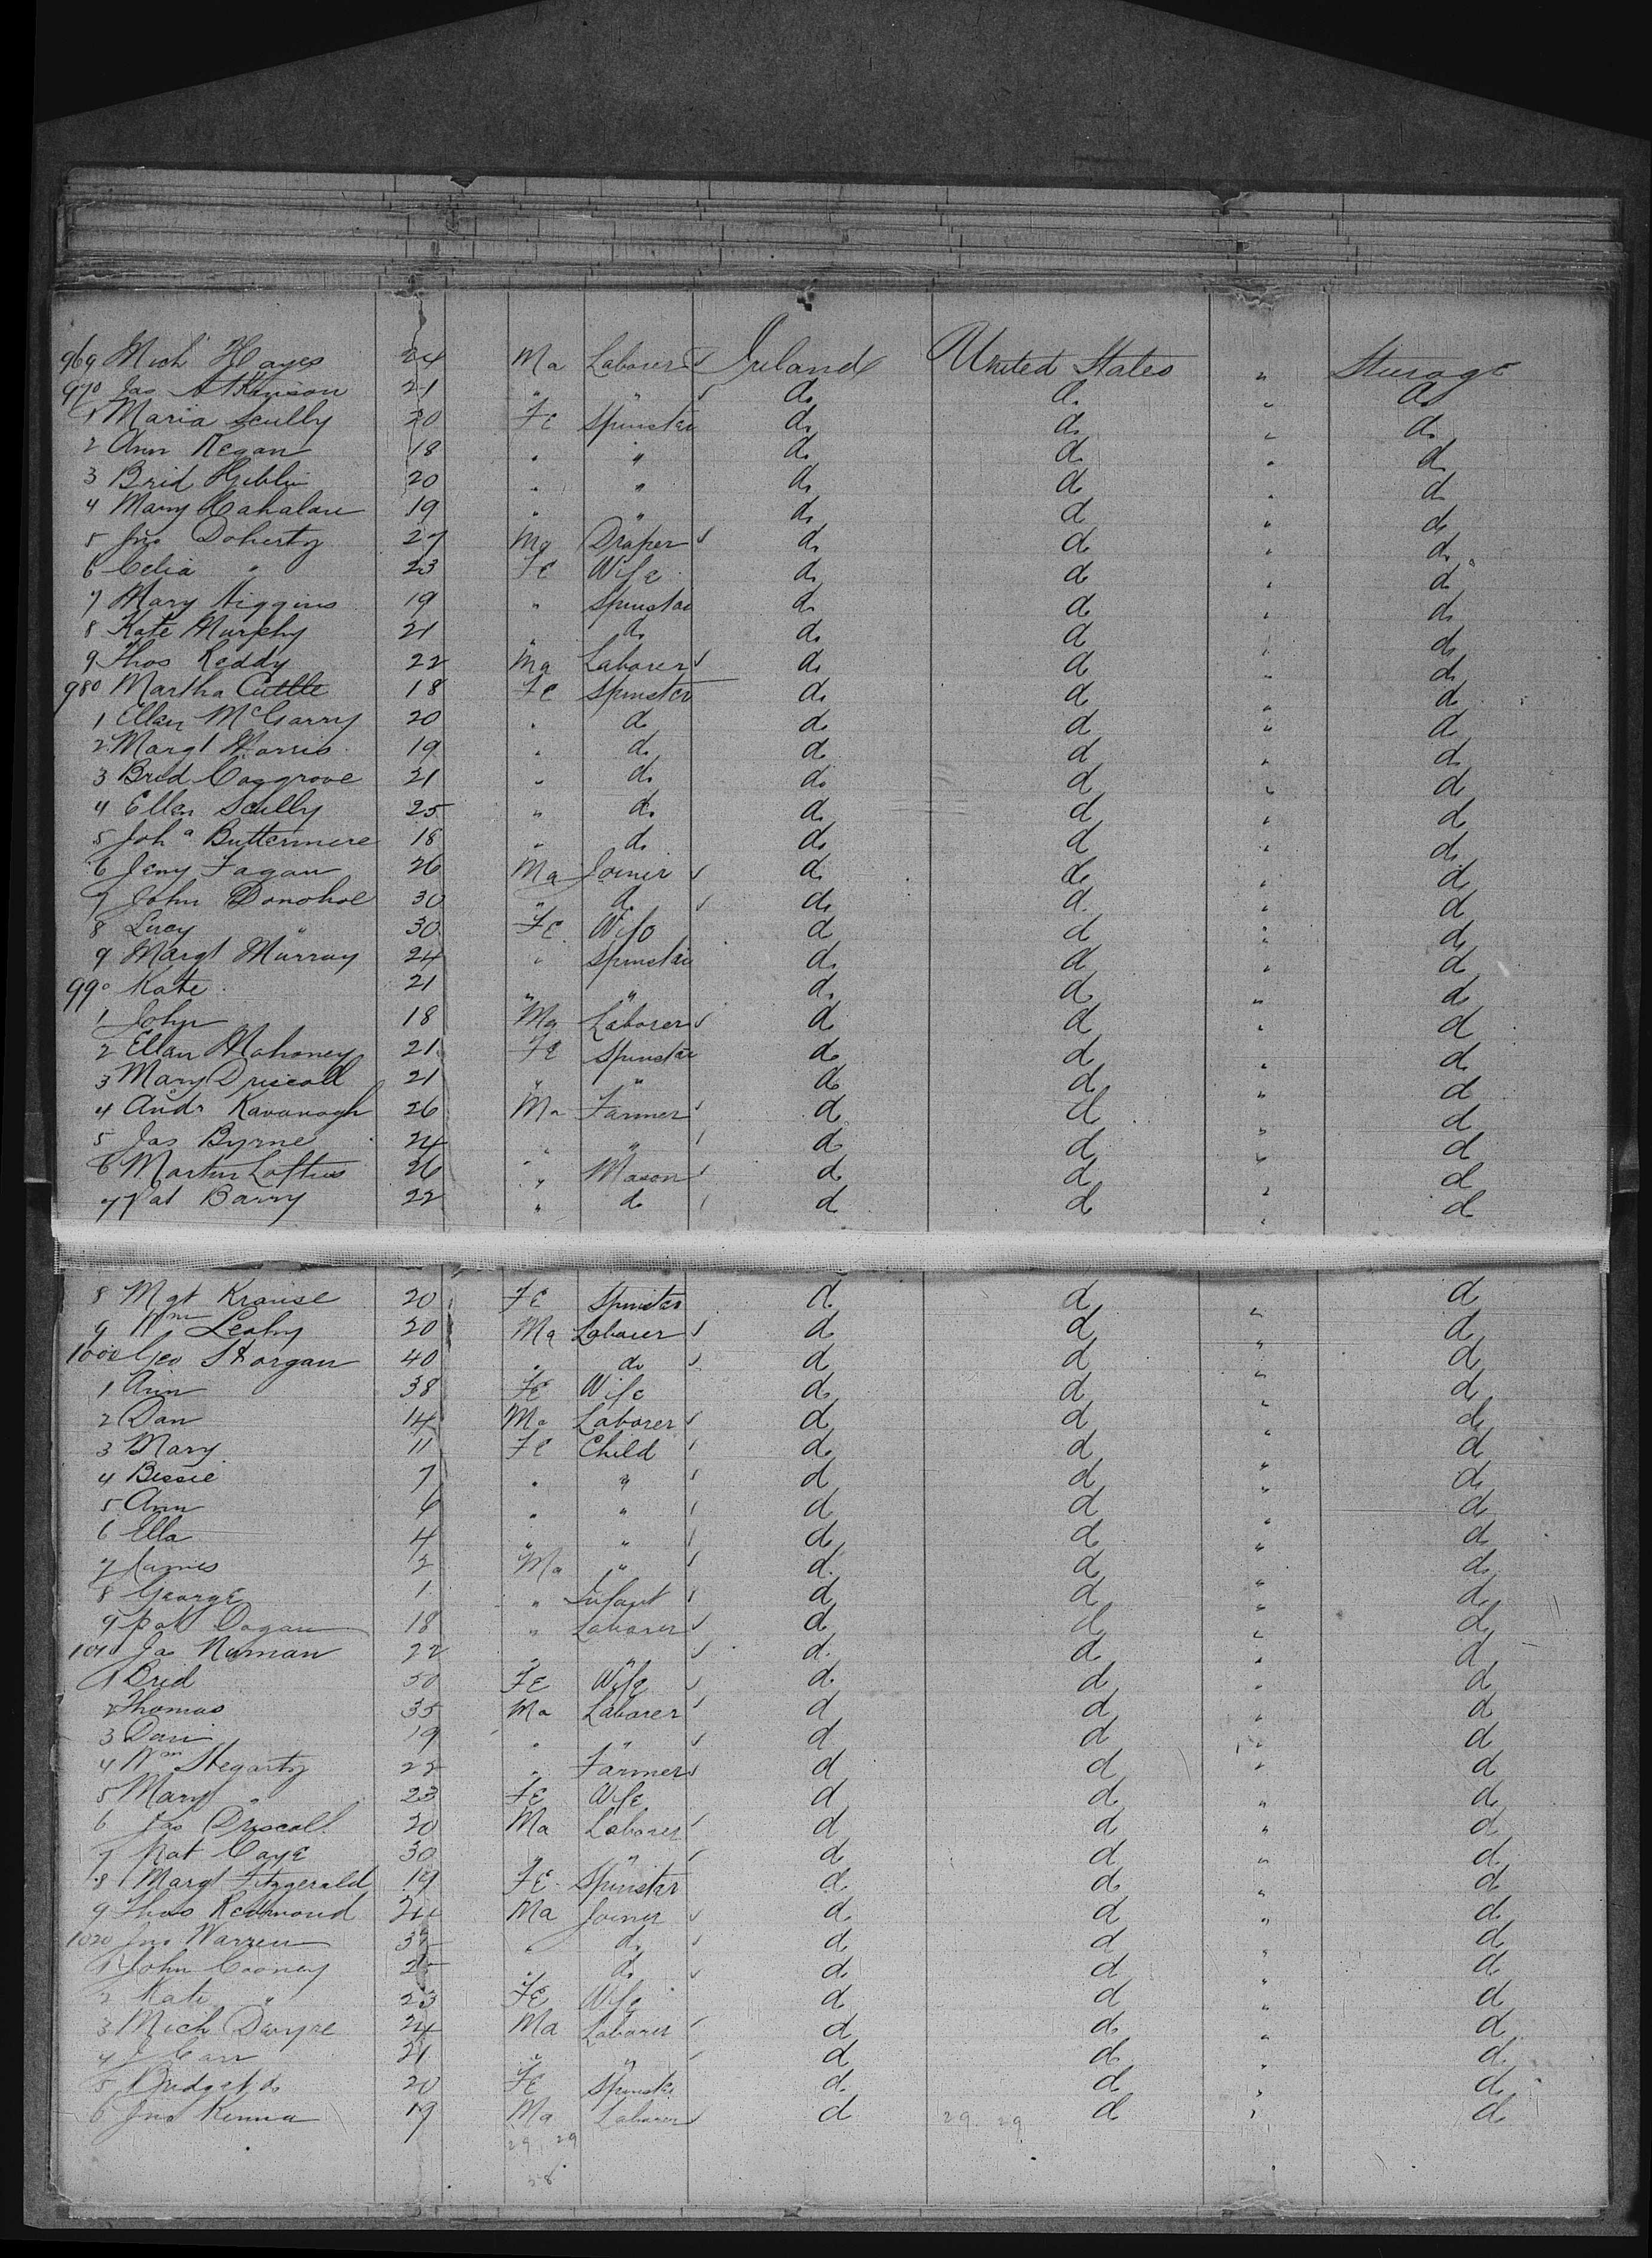 969 Mich Hayes 24 Ma Laborer Ireland United States " Steerage
970 Jas Atkinson 21 " " do do " do
1 Maria Scully 20 Fe Spinster do do " do
2 Ann Regan 18 " " do do " do
3 Brid Giblin 20 " " do do " do
4 Mary Cahalan 19 " " do do " do
5 Jno Doherty 27 Ma Draper do do " do
6 Celia " 23 Fe Wife do do " do
7 Mary Higgins 19 " Spinster do do " do
8 Kate Murphy 21 " do do do " do
9 Thos Reddy 22 Ma Laborer do do " do
980 Martha Cuttle 18 Fe Spinster do do " do
1 Ellen McGarry 20 " do do do " do
2 Margt Harris 19 " do do do " do
3 Brid Cosgrove 21 " do do do " do
4 Ellen Scully 25 " do do do " do
5 Joha Buttermere 18 " do do do " do
6 Jeny Fagan 26 Ma Joiner do do " do
7 John Donohoe 30 " do do do " do
8 Lucy " 30 Fe Wife do do " do
9 Margt Murray 24 " Spinster do do " do
990 Kate 21 " " do do " do
1 John 18 Ma Laborer do do " do
2 Ellen Mahoney 21 Fe Spinster do do " do
3 Mary Driscoll 21 " " do do " do
4 Andr Kavanagh 26 Ma Farmer do do " do
5 Jas Byrne 24 " " do do " do
6 Martin Loftus 26 " Mason do do " do
7 Pat Barry 22 " do do do " do
8 Mgt Krause 20 Fe Spinster do do " do
9 Wm Leahy 20 Ma Laborer do do " do
1000 Geo Horgan 40 " do do do " do
1 Ann 38 Fe Wife do do " do
2 Dan 14 Ma Laborer do do " do
3 Mary 11 Fe Child do do " do
4 Bessie 7 " " do do " do
5 Ann 6 " " do do " do
6 Ella 4 " " do do " do
7 James 2 Ma " do do " do
8 George 1 " Infant do do " do
9 Pat Dogan 18 " Laborer do do " do
1010 Jas Nunan 22 " " do do " do
1 Brid 30 Fe Wife do do " do
2 Thomas 35 Ma Laborer do do " do
3 Dan 19 " " do do " do
4 Wm Hegarty 22 " Farmer do do " do
5 Mary " 23 Fe Wife do do " do
6 Jas Driscoll 20 Ma Laborer do do " do
7 Pat Caye 30 " " do do " do
8 Margt Fitzgerald 19 Fe Spinster do do " do
9 Thos Redmond 24 Ma Joiner do do " do
1020 Jno Warren " do do do " do
1 John Cooney " do do do " do
2 Kate " 23 Fe Wife do do " do
3 Mich Dwyre 24 Ma Laborer do do " do
4 J Carr 21 " " do do " do
5 Bridget do 20 Fe Spinster do do " do
6 Jno Kenna 19 Ma Laborer do 29. 29 do " do
29, 29
58